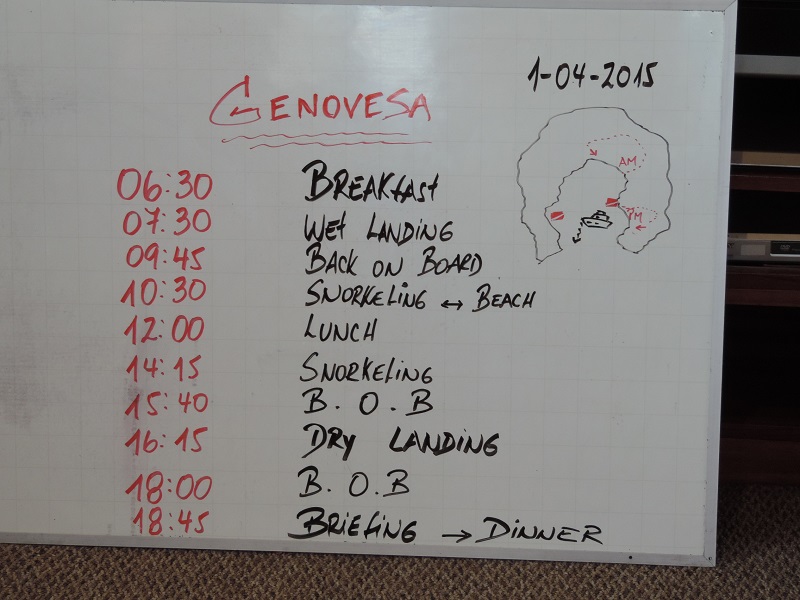 1-04-2015
GENOVESA
06:30 BREAKFAST
07:30 WET LANDING
09:45 BACK ON BOARD
10:30 SNORKELING ↔ BEACH
12:00 LUNCH
14:15 SNORKELING
15:40 B. O. B
16:15 DRY LANDING
18:00 B. O. B
18:45 BRIEFING → DINNER
AM
PM